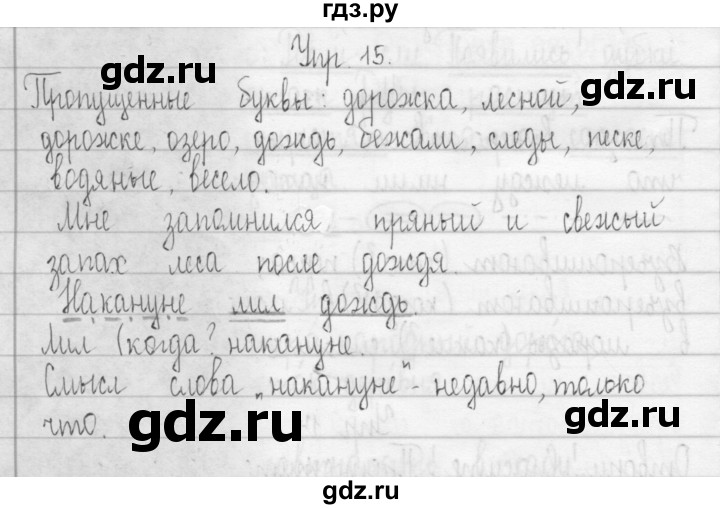 гдз.ру
Упр. 15.
gdz.ru gdz.ru
Пропущенные буквы: дорожка, лесной,
дорожке, озеро, дождь, бежали, следы, песке,
водяные, весело.
Мне запомнился пряный и свежый
запах леса после дождя.
Накануне лил дождь.
gdz.ru gdz.ru
Лил (когда? накануне.
Смысл слова „накануне"- недавно, только
что.
gdz.ru gdz.ru
gdz.ru